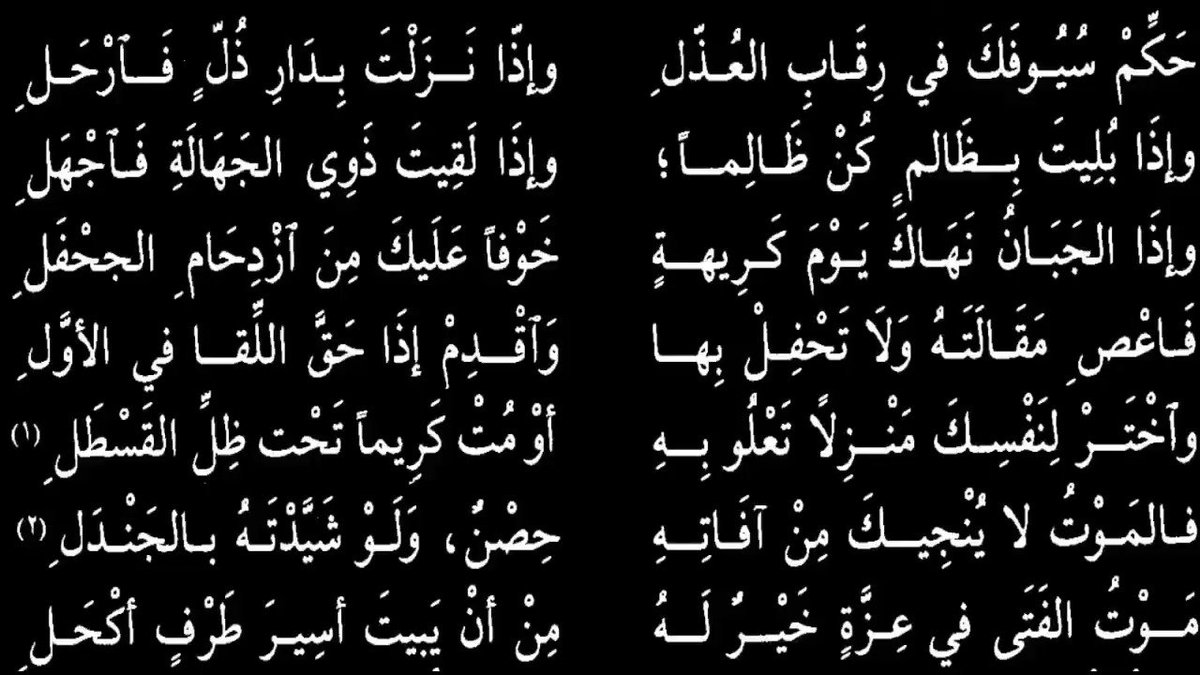 حَكِّمْ سُيُوفَكَ في رِقَابِ العُذّلِ وإذَا نَزَلْتَ بِدَارِ ذُلٍّ فَٱرْحَلِ
وإذَا بُلِيتَ بِظَالمٍ كُنْ ظَالِماً؛ وإذَا لَقِيتَ ذَوِي الجَهَالَةِ فَٱجْهَلِ
وإذَا الجَبَانُ نَهَاكَ يَوْمَ كَرِيهةٍ خَوْفاً عَلَيكَ مِنَ ٱزْدِحَامِ الجحْفَلِ
فَاعْصِ مَقَالَتَهُ وَلَا تَحْفِلْ بِها وَٱقْدِمْ إذَا حَقَّ اللِّقا في الأوَّلِ
وٱخْتَرْ لِنَفْسِكَ مَنْزِلاً تَعْلُو بِهِ أوْ مُتْ كَرِيماً تَحْت ظِلِّ القَسْطَلِ (١)
فالمَوْتُ لا يُنْجِيكَ مِنْ آفَاتِهِ حِصْنٌ، وَلَوْ شَيَّدْتَهُ بالجَنْدَلِ (٢)
مَوْتُ الفَتَى في عِزَّةٍ خَيْرٌ لَهُ مِنْ أنْ يَبيتَ أسِيرَ طَرْفٍ أكْحَلِ